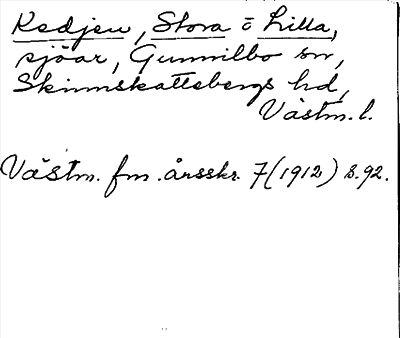 Kedjen, Stora o Lilla,
sjöar, Gunnilbo sn,
Skinnskattebergs hd,
Västm. l.
Västm. fm. årsskr. 7(1912) s. 92.